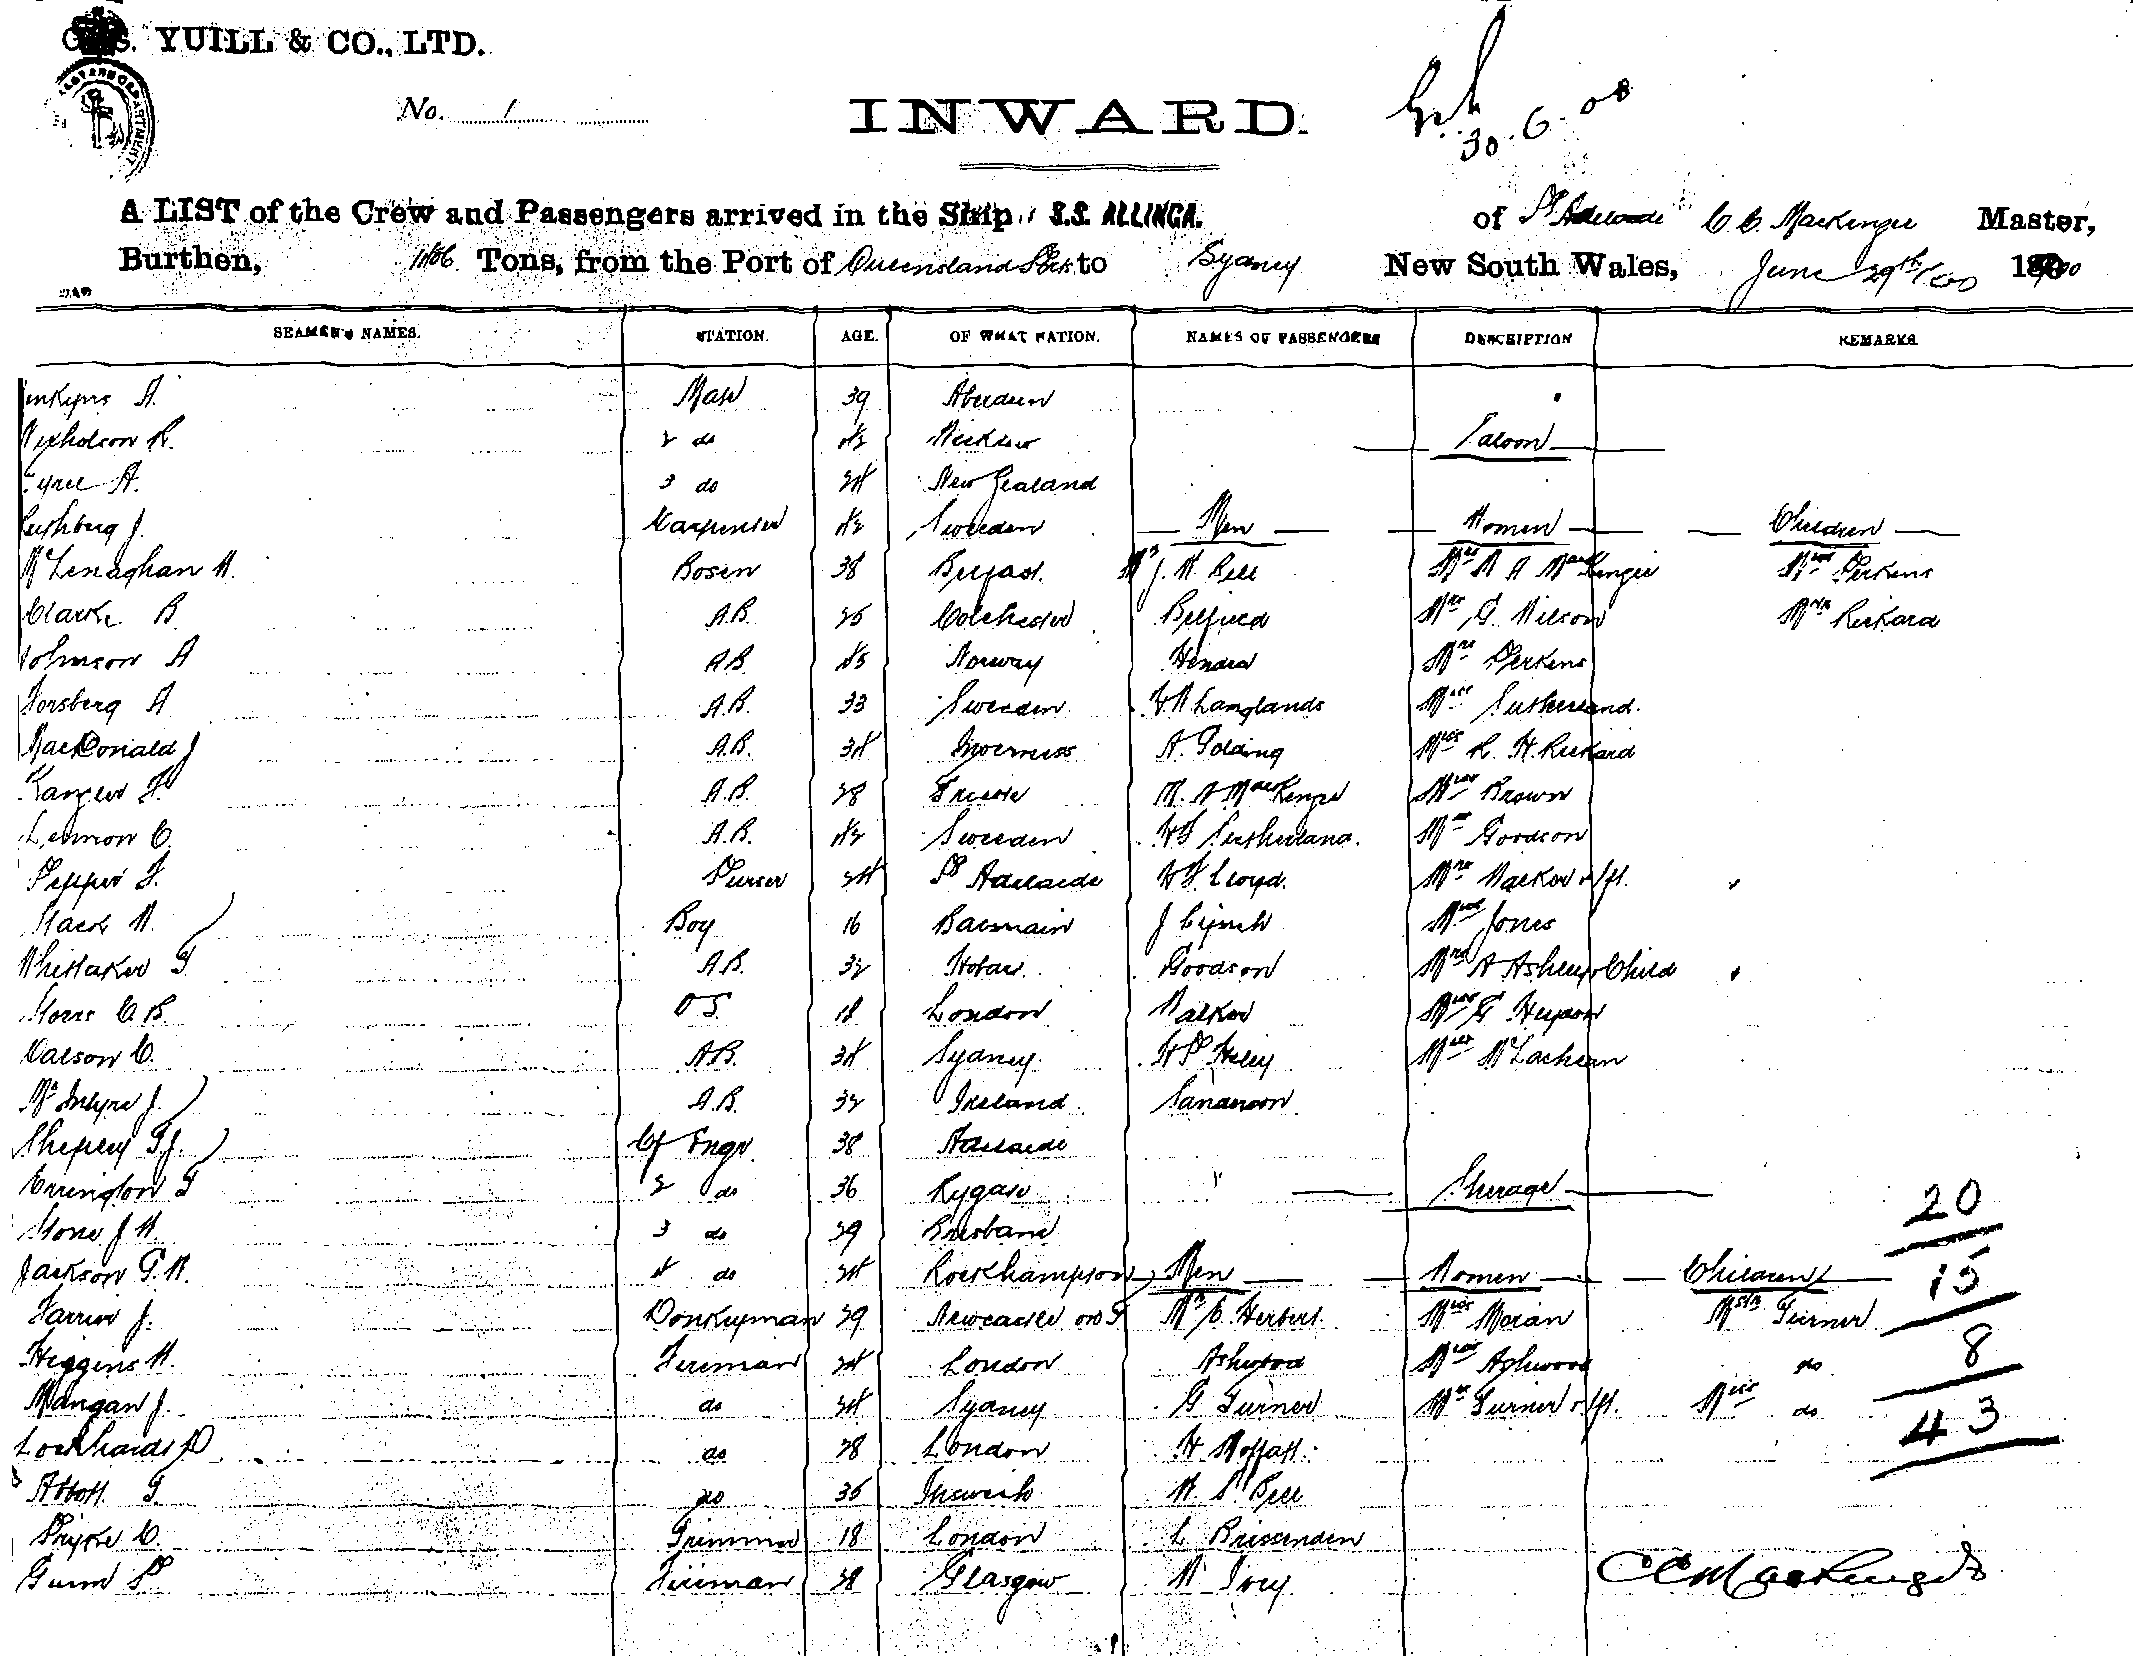 YUILL & CO., LTD.
No. 1
INWARD.
30.6.00
A LIST of the Crew and Passengers arrived in the Ship S.S. ALLINGA. of Pt Adelaide C C MacKenzie Master,
Burthen, Tons, from the Port of Queensland Pts to Sydney New South Wales, June 29th/00
SEAMEN'S NAMES. STATION. AGE. OF WHAT NATION. NAMES OF PASSENGERS DESCRIPTION REMARKS
Jenkyns A. Mate 39 Aberdeen
Nicholson R. 2 do 42 Saloon
A. 3 do 24 New Zealand
J. Carpenter 42 Sweeden Men Women Children
McLenaghan W. Bosen 38 Belfast. Mr J. W. Bell Mrs W A MacKenzie Miss Perkens
Clarke B. A.B. 25 Colchester Belfield Mrs G. Wilson Mstr Rickard
Johnson A A.B. 45 Norway Hendra Mrs Perkens
Forsberg A A.B. 33 Sweeden W Langlands Miss Sutherland.
MacDonald J A.B. 34 Inverness A. Golding Miss R. H. Rickard
F. A.B. 28 W. A MacKenzie Miss Brown
Lennon C. A.B. 42 Sweeden Sutherland. Mrs Goodson
Pepper F. Purser 24 Pt Adelaide Lloyd. Mrs Walker & Ift.
W. Boy 16 Balmain J Lynch Miss Jones
Whittaker G. A.B. 32 Hobart. Goodson Mrs A Ashley & Child
C. B. O S. 18 London Walker Miss G Heydon
C. A.B. 34 Sydney. Heley Miss McLachlan
McIntyre J. A.B. 32 Ireland Sanderson
G.J. Cf Engr. 38 Adelaide
Errington G 2 do 36 Steerage 20
Stone J W. 3 do 29 Brisbane
Jackson G. W. 4 do 24 Rockhampton Men Women Children 15
Farrier J. Donkeyman 29 Newcastle on T Mr C. Herbert. Miss Moran Mstr Turner
Higgins W. Fireman 24 London Ashwood Miss Ashwood do 8
Mangan J. do 24 Sydney G Turner Mrs Turner & Ift. Miss do 43
Lockhards D do 28 London H Moffatt.
Abbott G. do 35 Ipswich W. S. Bell
C. Trimmer 18 London L Brissenden
Gunn P Fireman 38 Glasgow W
C C MacKenzie